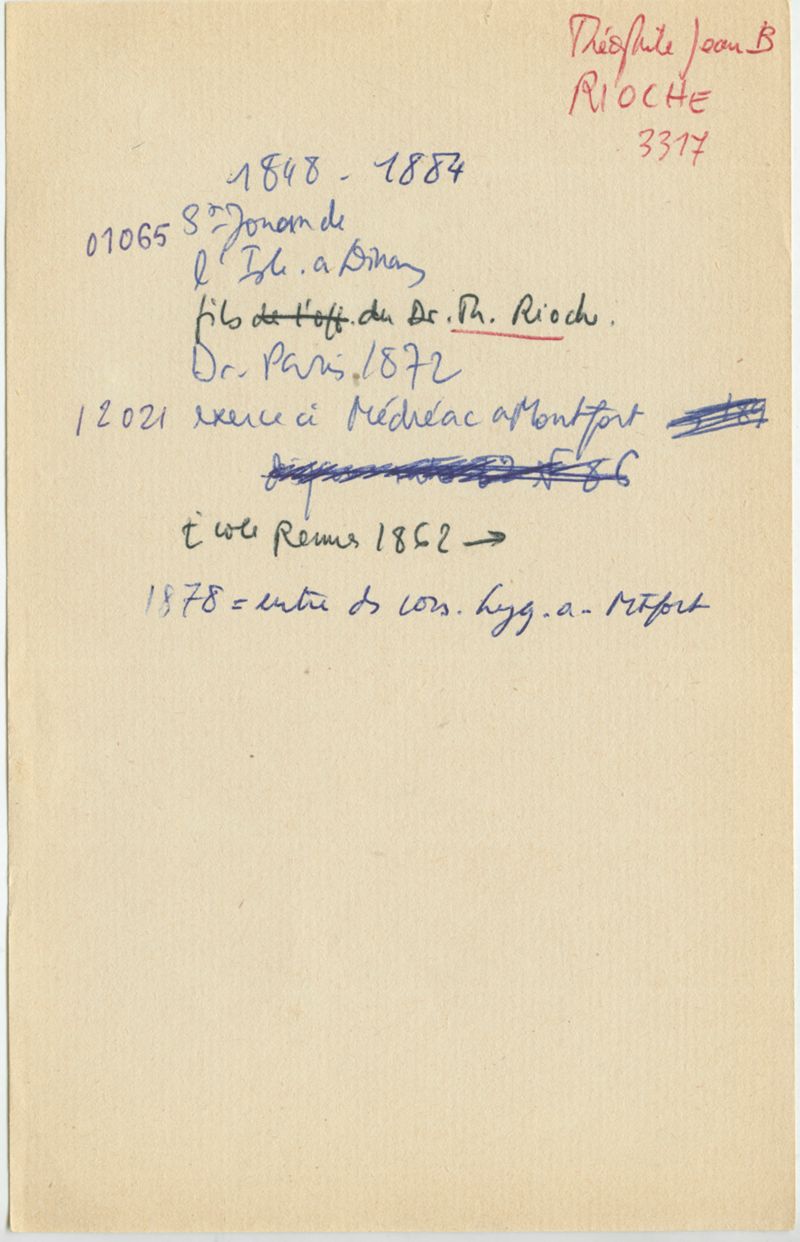 Théophile Jean B
RIOCHE
3317
1848 - 1884
01065 St-Jouan de
l'Isle. a Dinan
fils de l'off. du Dr. Th. Rioche.
Dr. Paris 1872
12021 exerce à Médréac a Montfort
École Rennes 1862 →
1878 = entre ds cons. hyg. a. Mtfort